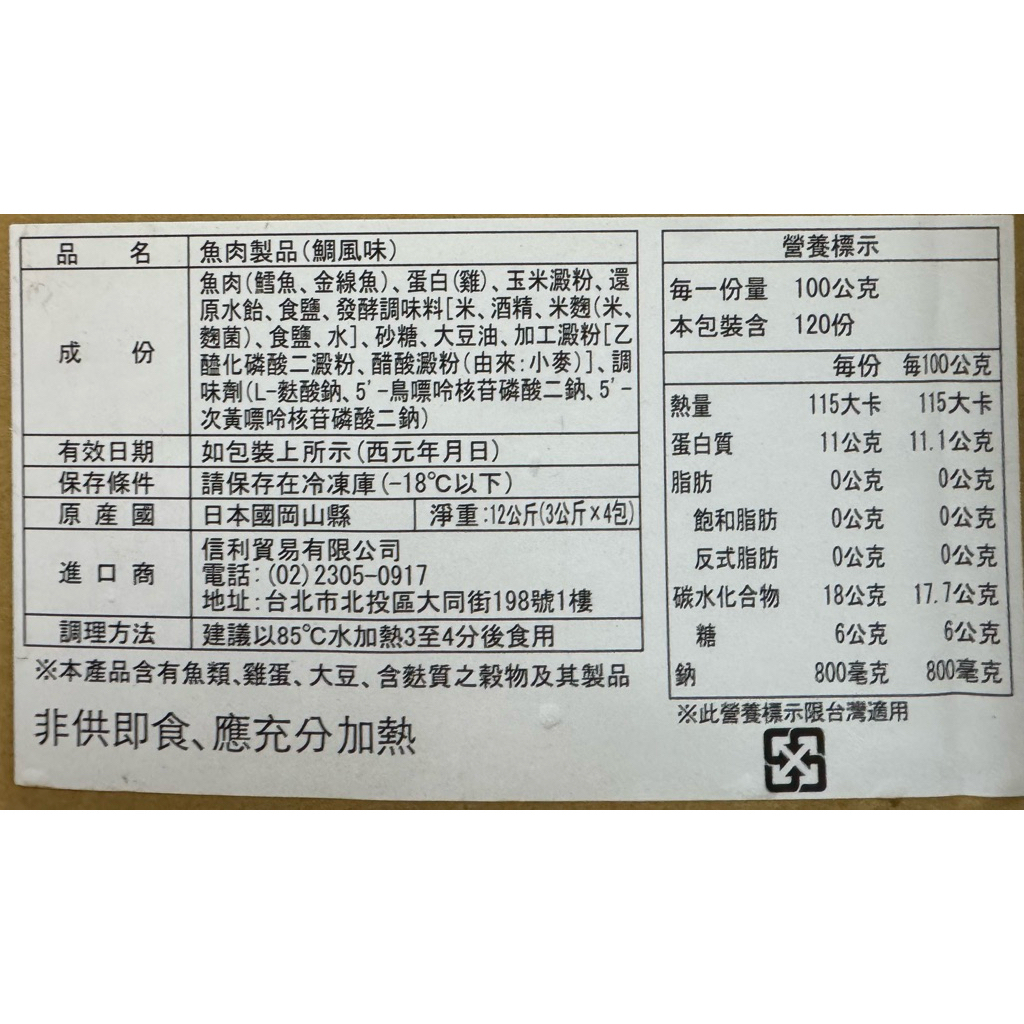 品名 魚肉製品(鯛風味)
成份 魚肉(鱈魚、金線魚)、蛋白(雞)、玉米澱粉、還
原水飴、食鹽、發酵調味料[米、酒精、米麴(米、
麴菌)、食鹽、水]、砂糖、大豆油、加工澱粉[乙
醯化磷酸二澱粉、醋酸澱粉(由來:小麥)]、調
味劑(L-麩酸鈉、5'-鳥嘌呤核苷磷酸二鈉、5'-
次黃嘌呤核苷磷酸二鈉)
有效日期 如包裝上所示(西元年月日)
保存條件 請保存在冷凍庫(-18℃以下)
原產國 日本國岡山縣 淨重:12公斤(3公斤×4包)
進口商 信利貿易有限公司
電話:(02)2305-0917
地址:台北市北投區大同街198號1樓
調理方法 建議以85℃水加熱3至4分後食用
※本產品含有魚類、雞蛋、大豆、含麩質之穀物及其製品
非供即食、應充分加熱
營養標示
每一份量 100公克
本包裝含 120份
每份 每100公克
熱量 115大卡 115大卡
蛋白質 11公克 11.1公克
脂肪 0公克 0公克
飽和脂肪 0公克 0公克
反式脂肪 0公克 0公克
碳水化合物 18公克 17.7公克
糖 6公克 6公克
鈉 800毫克 800毫克
※此營養標示限台灣適用